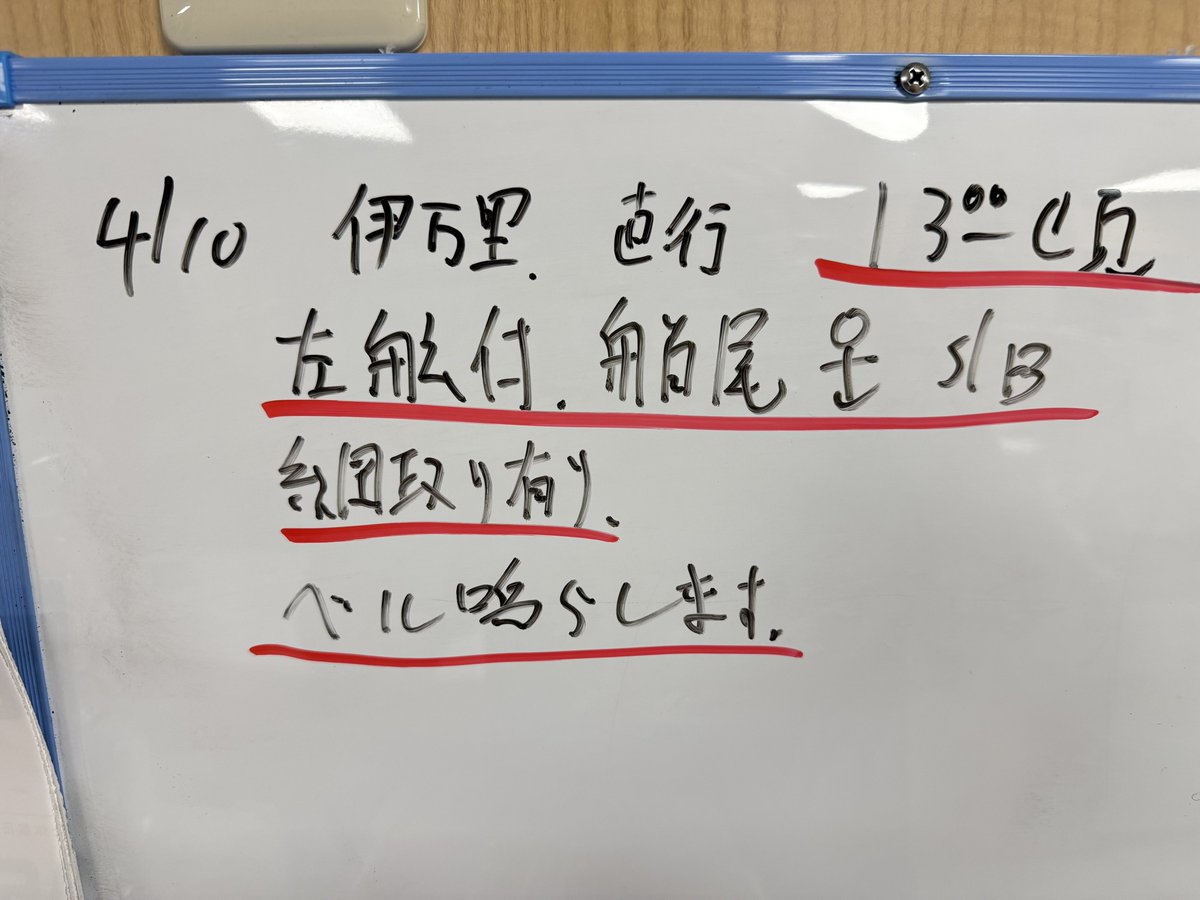 4/10 伊万里. 直行 13⁰⁰頃
左舷付. 船尾 ⚓ S/B
綱取り有り.
ベル鳴らします.